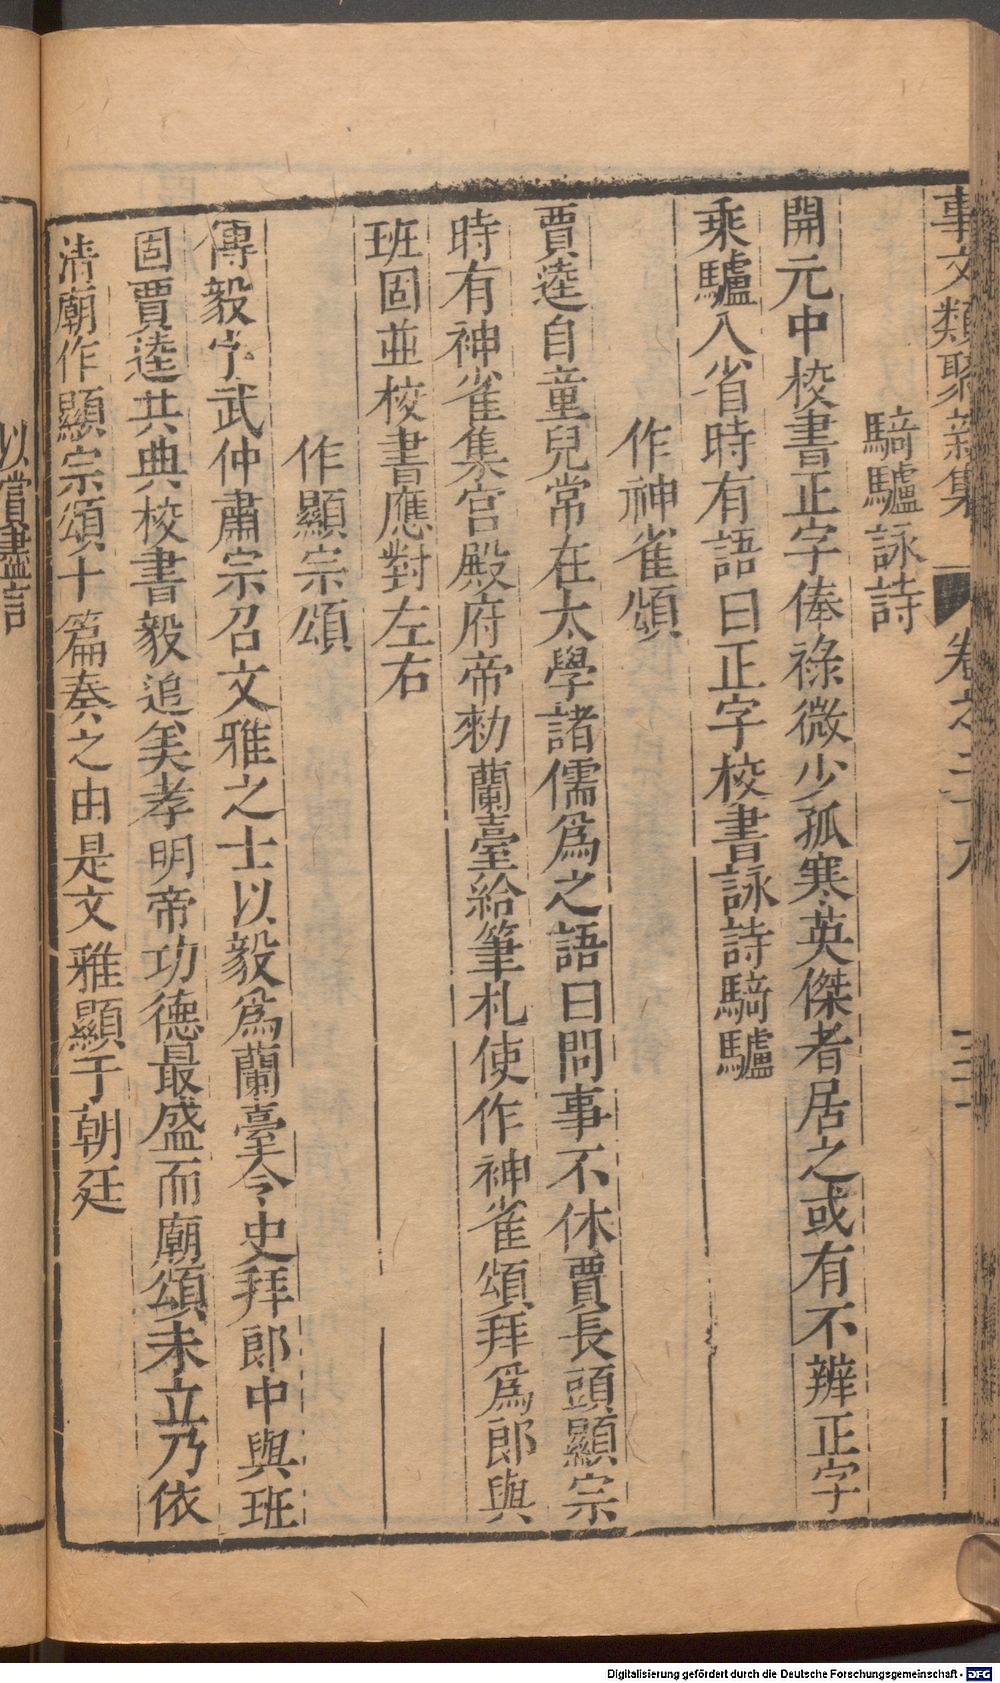 事文類聚新集 卷之二十九 三十一
騎驢詠詩
開元中校書正字俸祿微少孤寒英傑者居之或有不辨正字
乘驢入省時有語曰正字校書詠詩騎驢
作神雀頌
賈逵自童兒常在太學諸儒爲之語曰問事不休賈長頭顯宗
時有神雀集宮殿府帝勑蘭臺給筆札使作神雀頌拜爲郎與
班固並校書應對左右
作顯宗頌
傅毅字武仲肅宗召文雅之士以毅爲蘭臺令史拜郎中與班
固賈逵共典校書毅追美孝明帝功德最盛而廟頌未立乃依
清廟作顯宗頌十篇奏之由是文雅顯于朝廷
以嘗盡言
Digitalisierung gefördert durch die Deutsche Forschungsgemeinschaft - DFG